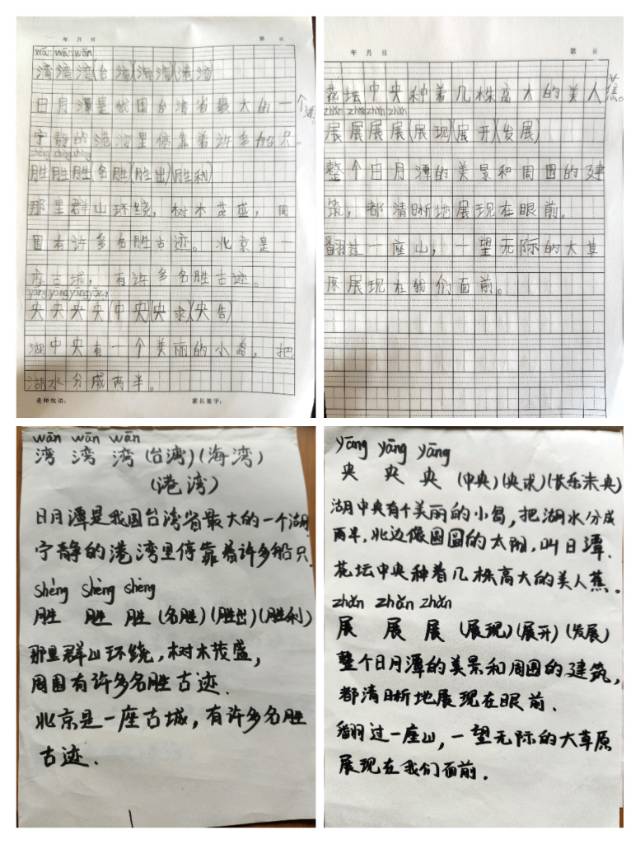 年 月 日
第 页
wān wān wān
湾湾湾(台湾)(海湾)(港湾)
日月潭是我国台湾省最大的一个湖
宁静的港湾里停靠着许多船只。
胜胜胜(名胜)(胜出)(胜利)
那里群山环绕,树木茂盛,周
围有许多名胜古迹。北京是一
座古城,有许多名胜古迹。
yāng yāng yāng yāng
央央央央(中央)(央求)(央告)
湖中央有一个美丽的小岛,把
湖水分成两半。
年 月 日
第 页
花坛中央种着几株高大的美人蕉。
zhǎn zhǎn zhǎn zhǎn
展展展展(展现)(展开)(发展)
整个日月潭的美景和周围的建
筑,都清晰地展现在眼前。
翻过一座山,一望无际的大草
原展现在我们面前。
wān wān wān
湾 湾 湾(台湾)(海湾)
(港湾)
日月潭是我国台湾省最大的一个湖
宁静的港湾里停靠着许多船只.
shèng shèng shèng
胜 胜 胜(名胜)(胜出)(胜利)
那里群山环绕,树木茂盛,
周围有许多名胜古迹.
北京是一座古城,有许多名胜
古迹.
yāng yāng yāng
央 央 央(中央)(央求)(长乐未央)
湖中央有个美丽的小岛,把湖水分成
两半,北边像圆圆的太阳,叫日潭.
花坛中央种着几株高大的美人蕉.
zhǎn zhǎn zhǎn
展 展 展(展现)(展开)(发展)
整个日月潭的美景和周围的建筑,
都清晰地展现在眼前.
翻过一座山,一望无际的大草原
展现在我们面前.